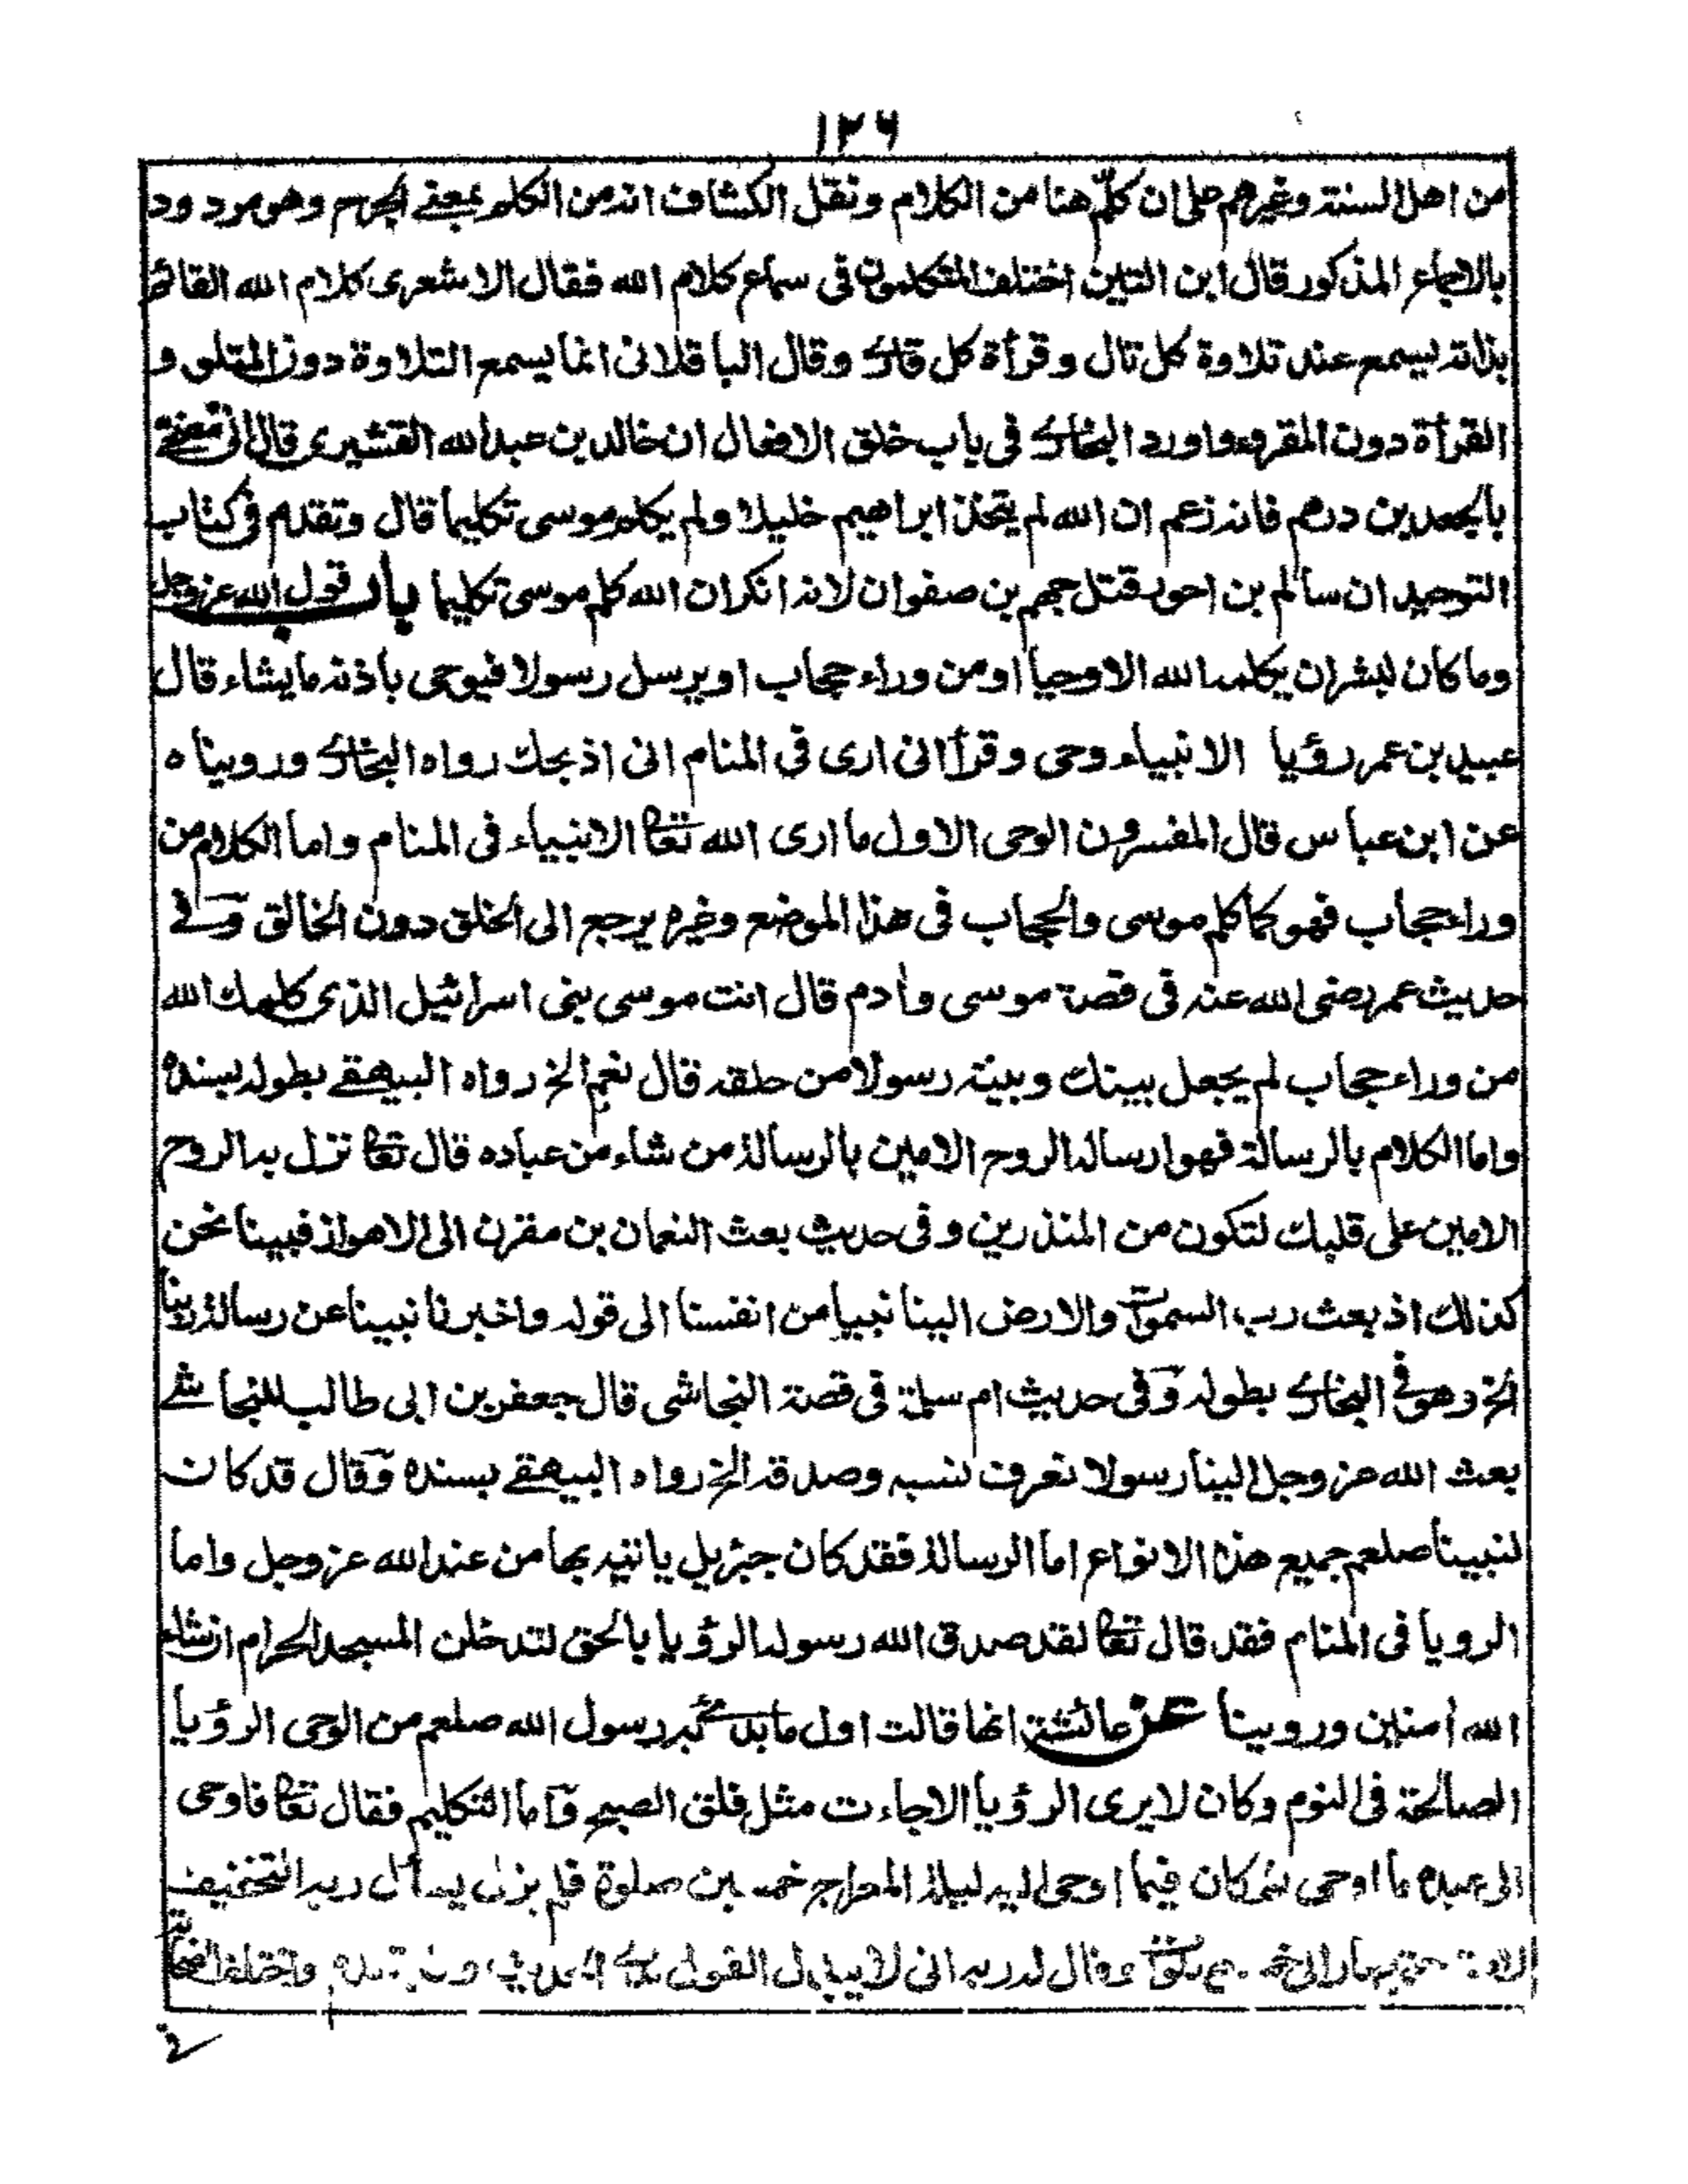 ١٢٦
من اهل السنة وغيرهم على ان كلّم هنا من الكلام ونقل الكشاف انه من الكلم بمعنے الجرح وهو مردود
بالاجماع المذكور قال ابن التين اختلف المتكلمون فى سماع كلام الله فقال الاشعرى كلام الله القائم
بذاته يسمع عند تلاوة كل تال وقرأة كل قارئ وقال الباقلانى انما يسمع التلاوة دون المتلو و
القرأة دون المقروء واورد البخارى فى باب خلق الافعال ان خالد بن عبدالله القشيرى قال انى مضح
بالجعد بن درهم فانه زعم ان الله لم يتخذ ابراهيم خليلا ولم يكلم موسى تكليما قال وتقدم فى كتاب
التوحيد ان سالم بن احوز قتل جهم بن صفوان لانه انكر ان الله كلم موسى تكليما باب قول الله عز وجل
وما كان لبشر ان يكلمه الله الا وحيا او من وراء حجاب او يرسل رسولا فيوحى باذنه ما يشاء قال
عبيد بن عمر رؤيا الانبياء وحى وقرأ انى ارى فى المنام انى اذبحك رواه البخارى وروينا ه
عن ابن عباس قال المفسرون الوحى الاول ما ارى الله تعا الانبياء فى المنام واما الكلام من
وراء حجاب فهو كما كلم موسى والحجاب فى هذا الموضع وغيره يرجع الى الخلق دون الخالق وفے
حديث عمر رضى الله عنه فى قصة موسى وأدم قال انت موسى بنى اسرائيل الذى كلمك الله
من وراء حجاب لم يجعل بينك وبينه رسولا من خلقه قال نعم الخ رواه البيهقے بطوله بسنده
واما الكلام بالرسالة فهو ارساله الروح الامين بالرسالة من شاء من عباده قال تعا نزل به الروح
الامين على قلبك لتكون من المنذرين وفى حديث بعث النعمان بن مقرن الى الاهواز فبينا نحن
كذلك اذ بعث رب السموات والارض الينا نبيا من انفسنا الى قوله واخبرنا نبينا عن رسالة ربنا
الخ وهو فى البخارى بطوله وفى حديث ام سلمة فى قصة النجاشى قال جعفر بن ابى طالب للنجاشے
بعث الله عز وجل الينا رسولا نعرف نسبه وصدقه الخ رواه البيهقے بسنده وقال قد كان
لنبينا صلعم جميع هذه الانواع اما الرسالة فقد كان جبرئيل ياتيه بها من عند الله عز وجل واما
الرويا فى المنام فقد قال تعا لقد صدق الله رسوله الرؤيا بالحق لتدخلن المسجد الحرام انشاء
الله أمنين وروينا عن عائشة انها قالت اول ما بدئ به رسول الله صلعم من الوحى الرؤيا
الصالحة فى النوم وكان لا يرى الرؤيا الا جاءت مثل فلق الصبح واما التكليم فقال تعا فاوحى
الى عبده ما اوحى ثم كان فيما اوحى اليه ليلة المعراج خمسين صلوة فلم يزل يسأل ربه التخفيف
صلوات وقال له ربه انى لا يبدل القول واختلف الصحابة
فى